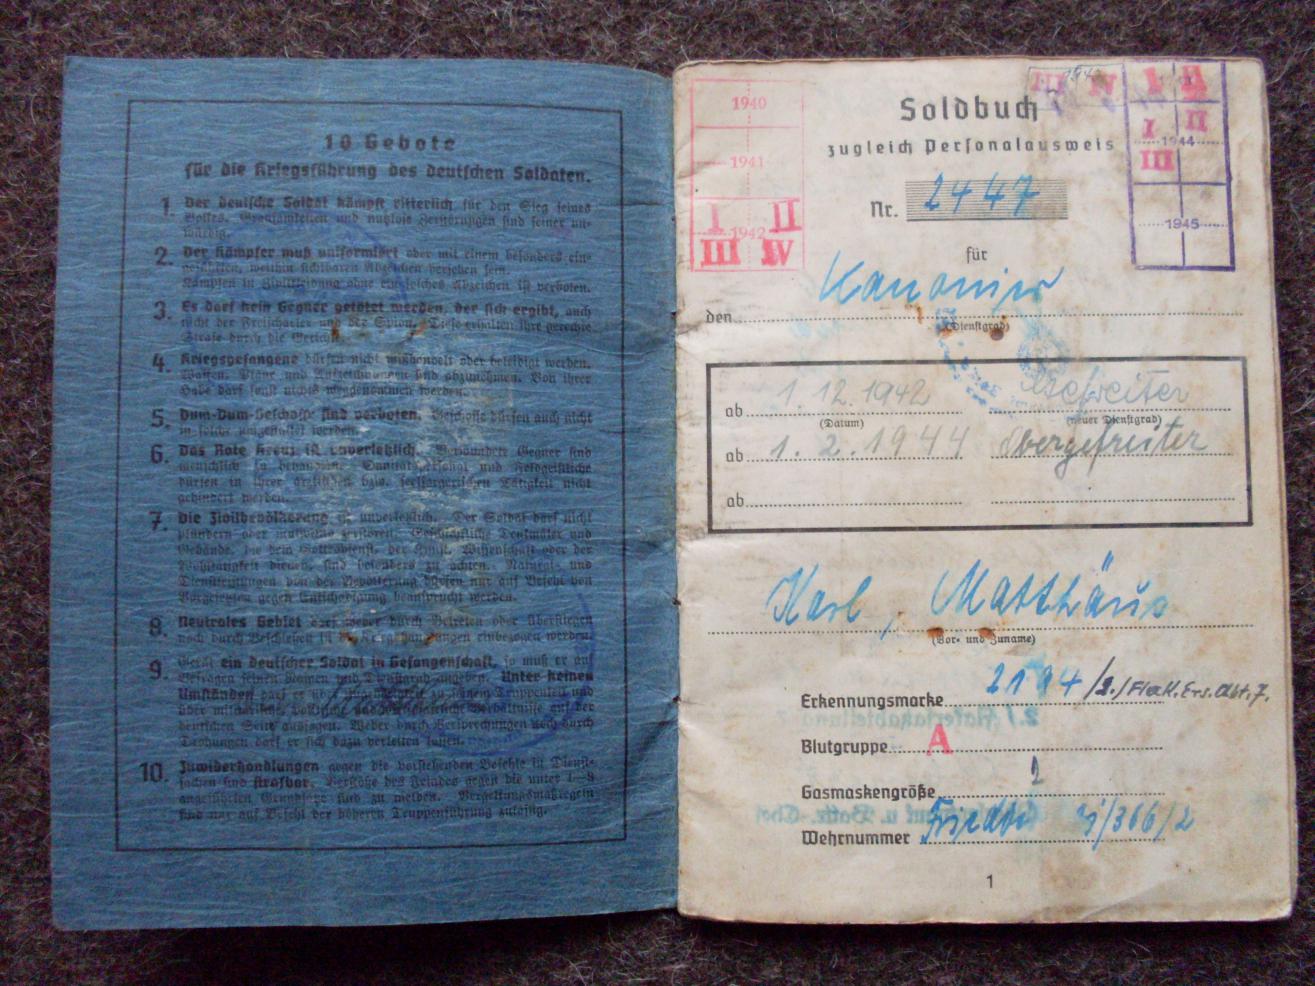 10 Gebote
für die Kriegsführung des deutschen Soldaten.
1. Der deutsche Soldat kämpft ritterlich für den Sieg seines
Volkes. Grausamkeiten und nutzlose Zerstörungen sind seiner un-
würdig.
2. Der Kämpfer muß uniformiert oder mit einem besonders ein-
geführten, weithin sichtbaren Abzeichen versehen sein.
Kämpfen in Zivilkleidung ohne ein solches Abzeichen ist verboten.
3. Es darf kein Gegner getötet werden, der sich ergibt, auch
nicht der Freischärler und der Spion. Diese erhalten ihre gerechte
Strafe durch die Gerichte.
4. Kriegsgefangene dürfen nicht mißhandelt oder beleidigt werden.
Waffen, Pläne und Aufzeichnungen sind abzunehmen. Von ihrer
Habe darf sonst nichts weggenommen werden.
5. Dum-Dum-Geschosse sind verboten. Geschosse dürfen auch nicht
in solche umgestaltet werden.
6. Das Rote Kreuz ist unverletzlich. Verwundete Gegner sind
menschlich zu behandeln. Sanitätspersonal und Feldgeistliche
dürfen in ihrer ärztlichen bzw. seelsorgerischen Tätigkeit nicht
gehindert werden.
7. Die Zivilbevölkerung ist unverletzlich. Der Soldat darf nicht
plündern oder mutwillig zerstören. Geschichtliche Denkmäler und
Gebäude, die dem Gottesdienst, der Kunst, Wissenschaft oder der
Wohltätigkeit dienen, sind besonders zu achten. Natural- und
Dienstleistungen von der Bevölkerung dürfen nur auf Befehl von
Vorgesetzten gegen Entschädigung beansprucht werden.
8. Neutrales Gebiet darf weder durch Betreten oder Überfliegen
noch durch Beschießen in die Kriegshandlungen einbezogen werden.
9. Gerät ein deutscher Soldat in Gefangenschaft, so muß er auf
Befragen seinen Namen und Dienstgrad angeben. Unter keinen
Umständen darf er über Zugehörigkeit zu seinem Truppenteil und
über militärische, politische und wirtschaftliche Verhältnisse auf der
deutschen Seite aussagen. Weder durch Versprechungen noch durch
Drohungen darf er sich dazu verleiten lassen.
10. Zuwiderhandlungen gegen die vorstehenden Befehle in Dienst-
sachen sind strafbar. Verstöße des Feindes gegen die unter 1—8
angeführten Grundsätze sind zu melden. Vergeltungsmaßregeln
sind nur auf Befehl der höheren Truppenführung zulässig.
1940
1941
I II
1942
III IV
III IV
I II
I II
1944
III
1945
Soldbuch
zugleich Personalausweis
Nr. 2447
für
den Kanonier
(Dienstgrad)
ab 1.12.1942 Gefreiter
(Datum) (neuer Dienstgrad)
ab 1.2.1944 Obergefreiter
ab
Karl, Matthäus
(Vor- und Zuname)
Erkennungsmarke 2194/2./Flak.Ers.Abt.7.
Blutgruppe A
Gasmaskengröße 2
Wehrnummer
1